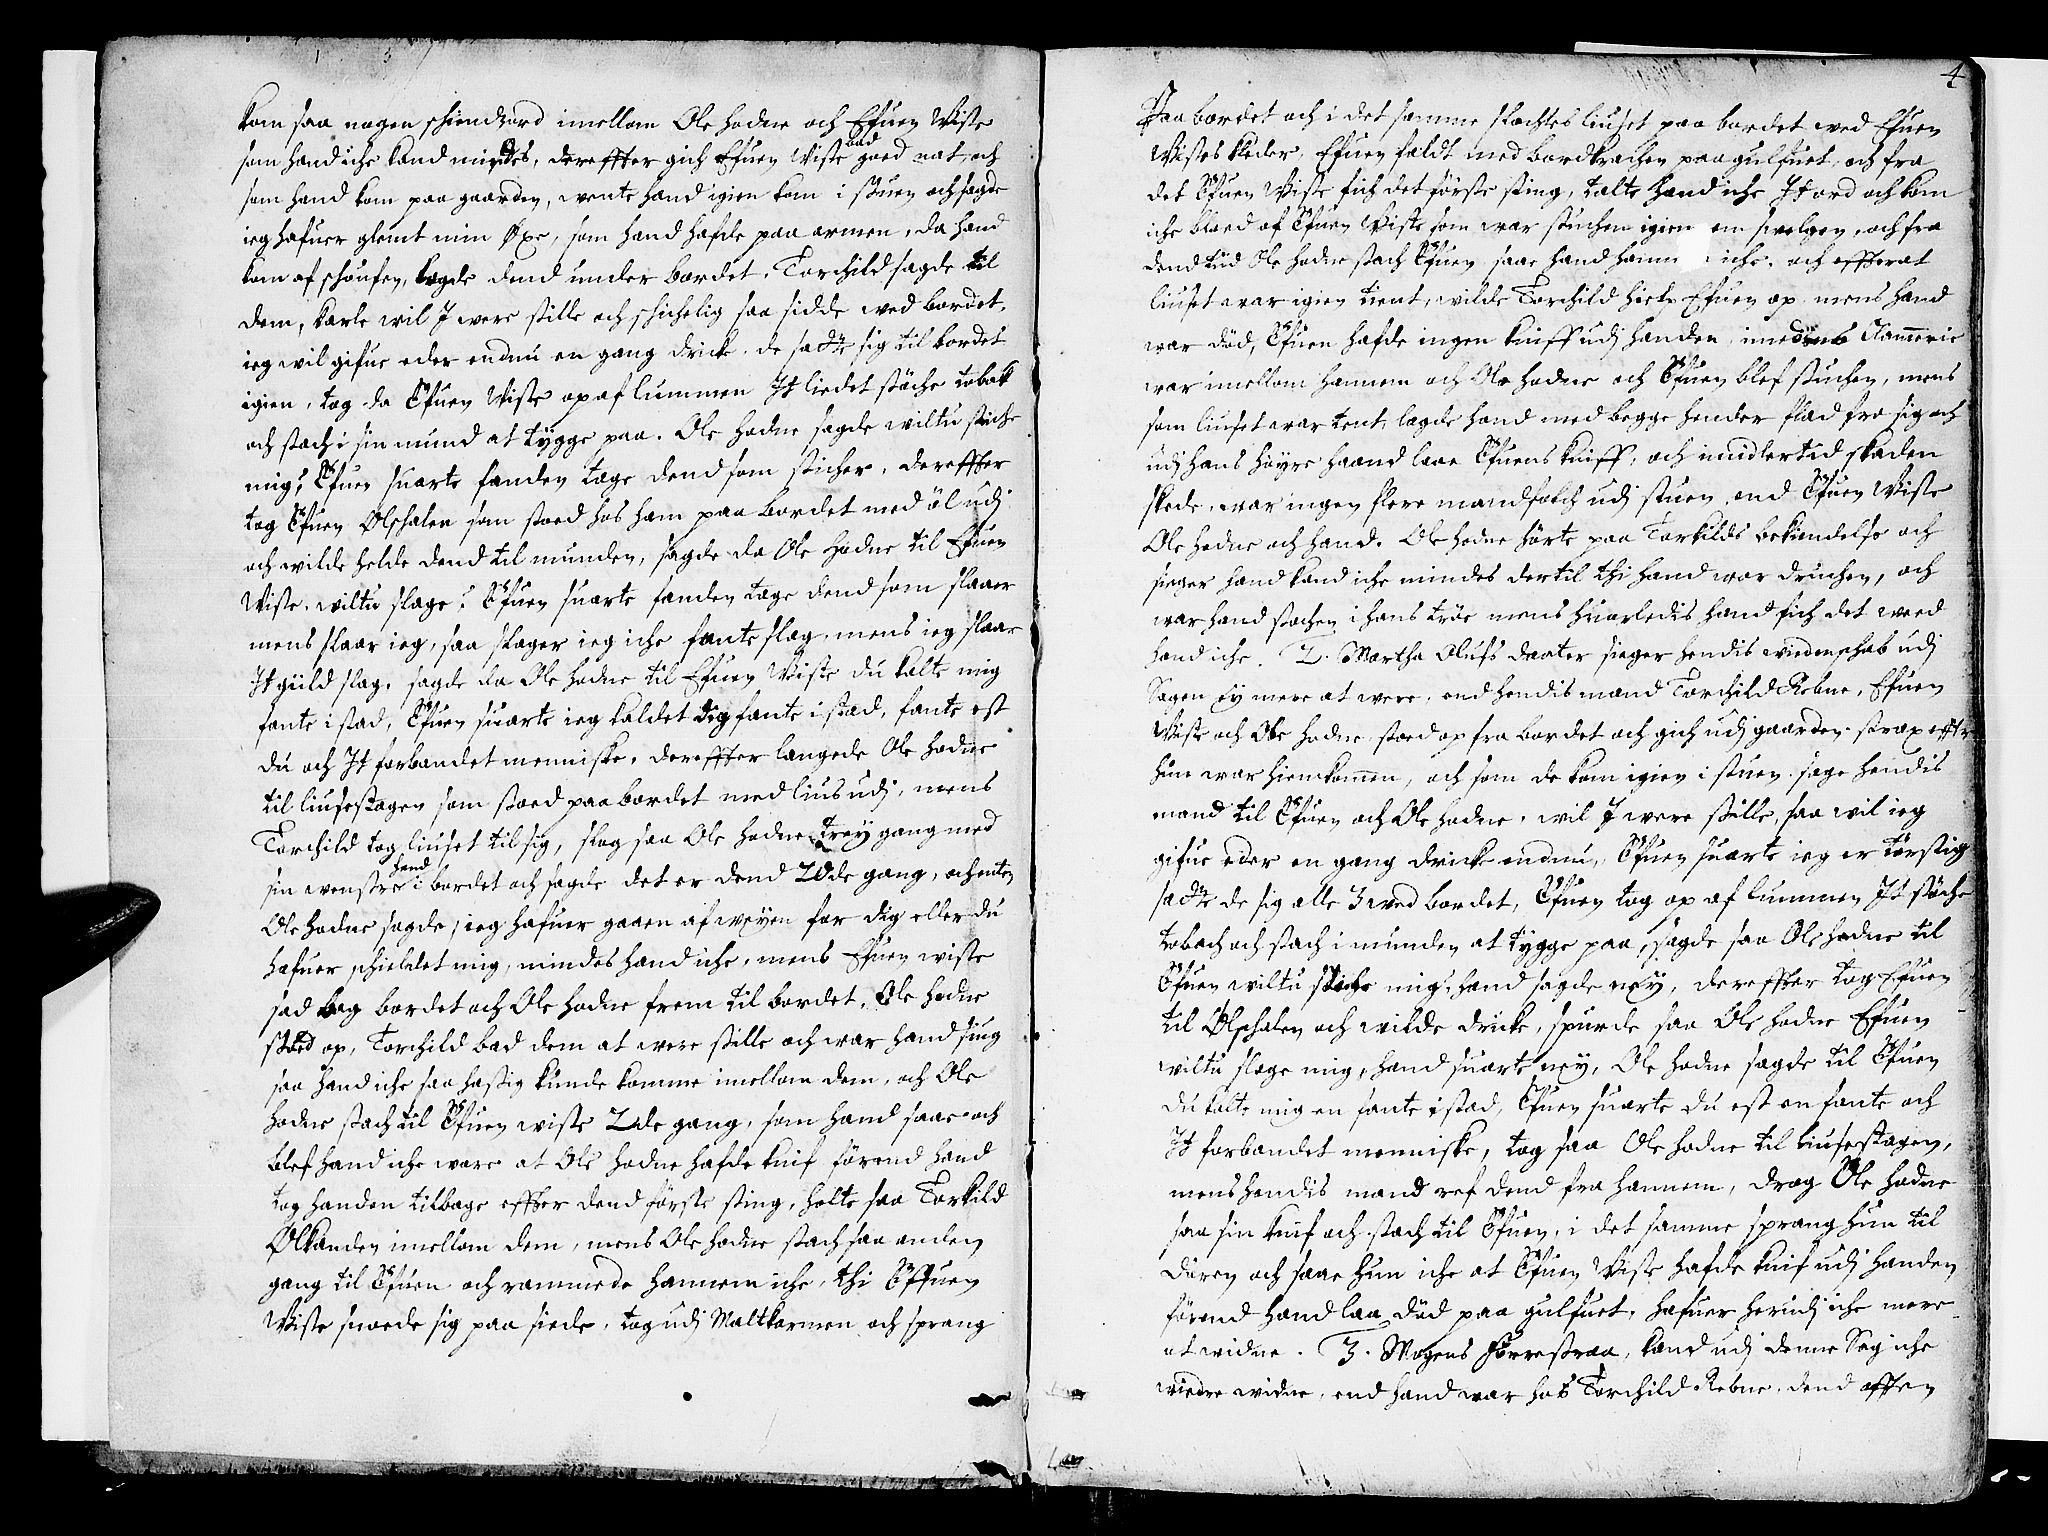 kom saa nogen schiendzord imellom Ole Hodne och Efuen Viste
som hand iche kand mindes, dereffter gich Efuen Viste bad goed nat, och
som hand kom paa gaarden, wente hand igien kom i stuen och sagde
ieg hafuer glemt min Øxe, som hand hafde paa armen, da hand
kom af schoufen, lagde dend under bordet. Torchild sagde til
dem, karle wil J were stille och schichelig saa sidde wed bordet,
ieg wil gifue eder endnu en gang dricke. de satte sig til bordet
igien, tog da Efuen Viste op af lummen It liedet støche tobak
och stach i sin mund at tygge paa. Ole Hodne sagde wiltu stiche
mig? Efuen suarte fanden tage dend som sticher, dereffter
tog Efuen Ølschalen som stoed hos ham paa bordet med øl udj
och wilde helde dend til munden, sagde da Ole Hodne til Efuen
Viste. wiltu slage? Efuen suarte fanden tage dend som slaaer
mens slaar ieg, saa slager ieg iche fante slag, mens ieg slaar
It guld slag. sagde da Ole Hodne til Efuen Viste du kalte mig
fante i stad, Efuen suarte ieg kaldet dig fante i stad, fante est
du och It forbandet menniske. dereffter langede Ole Hodne
til liusestagen som stoed paa bordet med lius udj, mens
Torchild tog liuset til sig, slog saa Ole Hodne trey gang med
sin wenstre hand i bordet och sagde det er dend 20de gang, och enten
Ole Hodne sagde, ieg hafuer gaaen af weyen for dig eller du
hafuer schieldet mig, mindes hand iche, mens Efuen wiste
sad bag bordet och Ole Hodne frem til bordet, Ole Hodne
stoed op, Torchild bad dem at were stille och war hand siug
saa hand iche saa hastig kunde komme imellom dem, och Ole
Hodne stach til Efuen wiste 2de gang, som hand saae och
blef hand iche ware at Ole Hodne hafde knif førend hand
tog handen tilbage effter dend første sting, holte saa Torkild
Ølkanden imellom dem, mens Ole Hodne stach saa anden
gang til Efuen och rammede hannem iche, thi Effuen
Wiste snoede sig paa siede, tog udj Maltkarmen och sprang
4
Paa bordet och i det samme slochtes liuset paa bordet wed Efuen
Wistes kleder, Efuen faldt med bordkrachen paa gulfuet, och fra
det Efuen Wiste fich det første sting, talte hand iche It ord och kom
iche bloed af Efuen Wiste som war stuchen igien em swelgen, och fra
dend tid Ole Hodne stach Efuen saae hand hannem iche. och efterat
liuset war igien tent, wilde Torchild hielpe Efuen op mens hand
war død, Efuen hafde ingen kniff udj handen imedens Clammerie
war imellom hannem och Ole Hodne och Efuen blef stuchen, mens
som liuset war tent, lagde hand med begge hender flad fra sig och
udj hans høyre haand laae Efuens kniff, och imidlertid skaden
skede, war ingen flere mandfolch udj stuen end Efuen Wiste
Ole Hodne och hand. Ole Hodne hørte paa Torkilds bekiendelse och
sieger hand kand iche mindes dertil thi hand war druchen, och
war hand stochen i hans trøe mens huorledis hand fich det weed
hand iche. 2. Martha Olufs daater sieger hendis widenschab udj
Sagen ey mere at were, end hendis mand Torchild Rebne, Efuen
Wiste och Ole Hodne stoed op fra bordet och gich udj gaarden strax effter
hun war hiemkommen, och som de kom igien i stuen sage hendis
mand til Efuen och Ole Hodne, wil J were stille, saa wil ieg
gifue eder en gang dricke endnu, Efuen suarte ieg er tørstig
satte de sig alle 3 wed bordet, Efuen tog op af lummen It støche
tobach och stach i munden at tygge paa, sagde saa Ole Hodne til
Efuen wiltu stiche mig? hand sagde ney, dereffter tog Efuen
til Ølschalen och wilde dricke, spurde saa Ole Hodne Efuen
wiltu slage mig, hand suarte ney, Ole Hodne sagde til Efuen
du kalte mig en fante i stad, Efuen suarte du est en fante och
It forbandet menniske, tog saa Ole Hodne til liusestagen,
mens hendis mand ref dend fra hannem, drog Ole Hodne
saa sin knif och stach til Efuen, i det samme sprang hun til
døren och saae hun iche at Efuen Wiste hafde knif udj handen
førend hand laa død paa gulfuet, hafuer herudj iche mere
at widne. 3. Mogens Førrestraa, kand udj denne Sag iche
wiedre widne, end hand war hos Torchild Rebne, dend afften